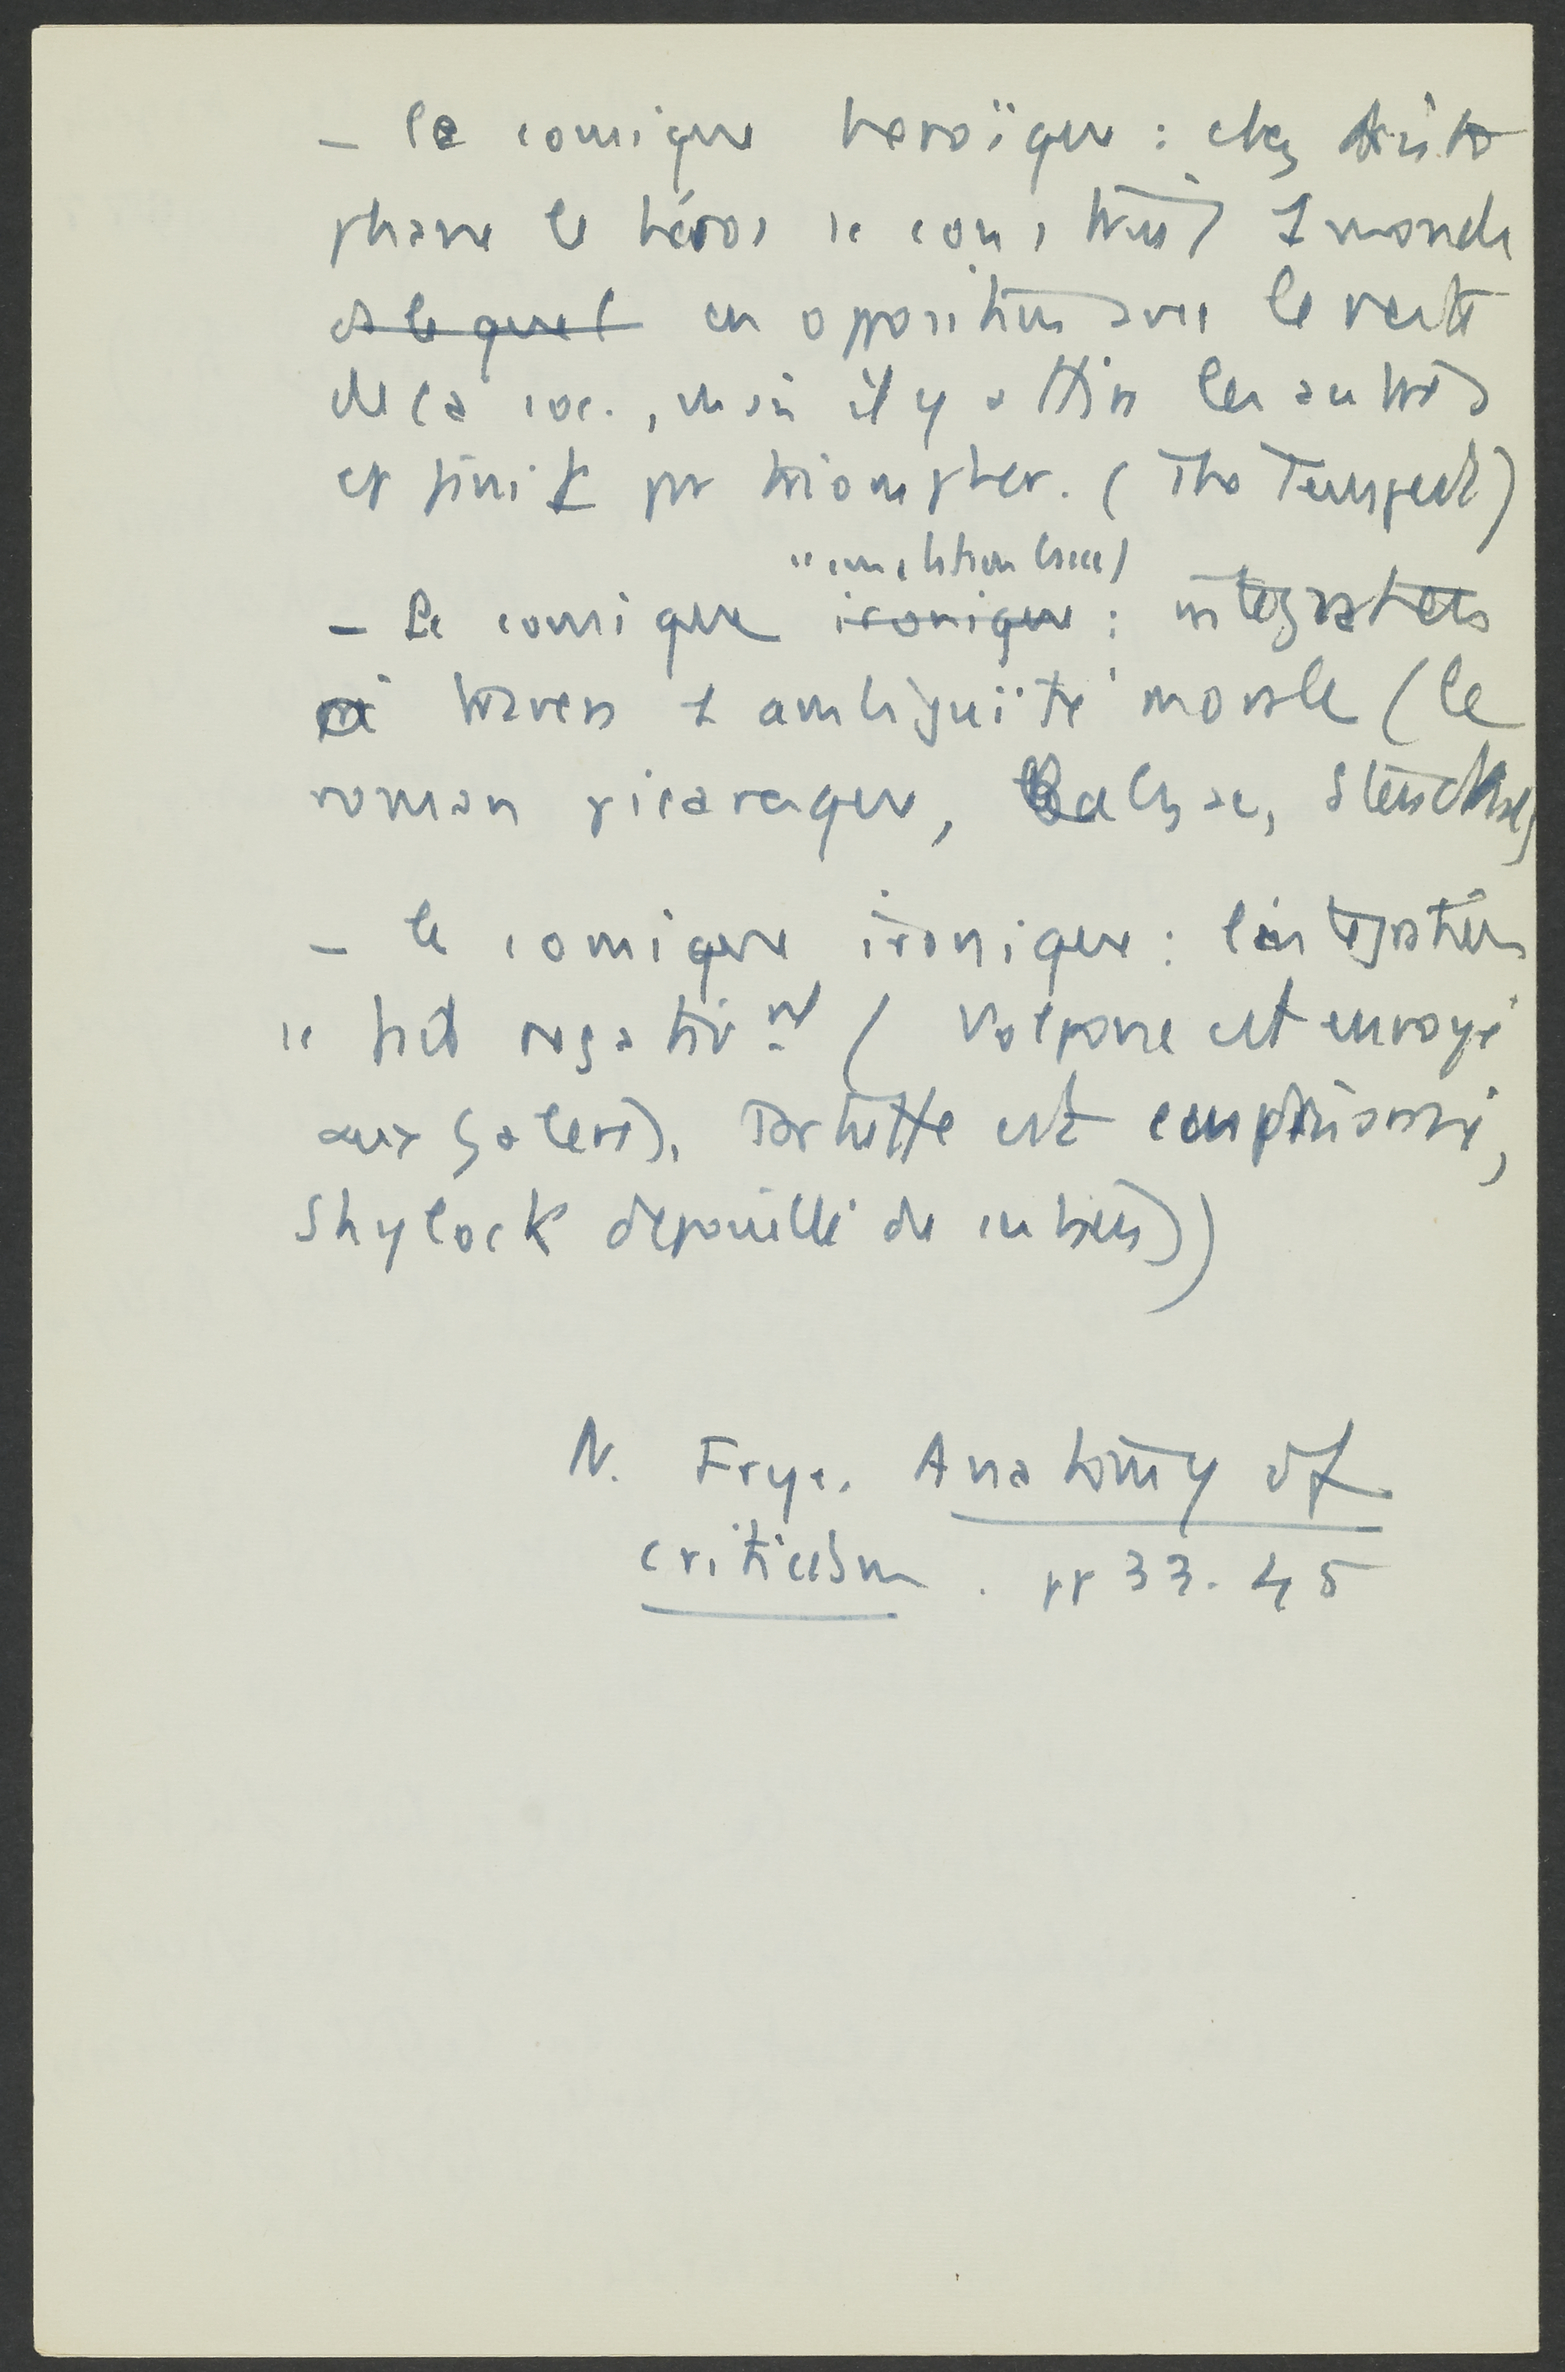 - le comique heroïque : chez Aristo
phane le héros se construit 1 monde
et lequel en opposition avec le reste
de la soc., mais il y attire les autres
et finit par triompher. (The Tempest)
- Le comique ironique : integration
à travers 1 ambiguïté morale (le
roman picaresque, Balzac, Stendhal)
- le comique ironique : l'integration
se fait negativnt (Volpone est envoyé
aux galeres), Tartuffe est emprisonné,
Shylock depouillé de ses biens))
N. Frye. Anatomy of
criticism . pp 33-45